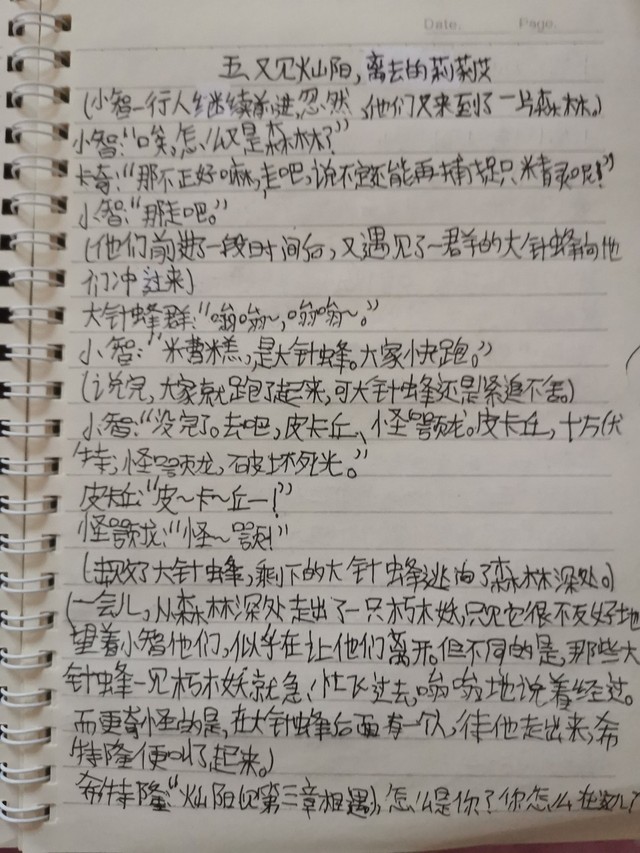 Date. Page.
五、又见灿阳,离去的莉莉艾
(小智一行人继续前进,忽然,他们又来到了一片森林。)
小智:“唉,怎么又是森林?”
卡奇:“那不正好嘛,走吧,说不定还能再捕捉只精灵呢!”
小智:“那走吧。”
(他们前进了一段时间后,又遇见了一群的大针蜂向他
们冲过来)
大针蜂群:“嗡嗡~,嗡嗡~。”
小智:“糟糕,是大针蜂。大家快跑。”
(说完,大家就跑了起来,可大针蜂还是紧追不舍。)
小智:“没完了。去吧,皮卡丘、怪颚龙。皮卡丘,十万伏
特;怪颚龙,破坏死光。”
皮卡丘:“皮~卡~丘—!”
怪颚龙:“怪~颚!”
(击败了大针蜂,剩下的大针蜂逃向了森林深处。)
(一会儿,从森林深处走出了一只朽木妖,只见它很不友好地
望着小智他们,似乎在让他们离开。但不同的是,那些大
针蜂一见朽木妖就急忙飞过去,嗡嗡地说着经过。
而更奇怪的是,在大针蜂后面有一个人,待他走出来,希
特隆便叫了起来。)
希特隆:“灿阳(见第三章相遇),怎么是你?你怎么在这儿?